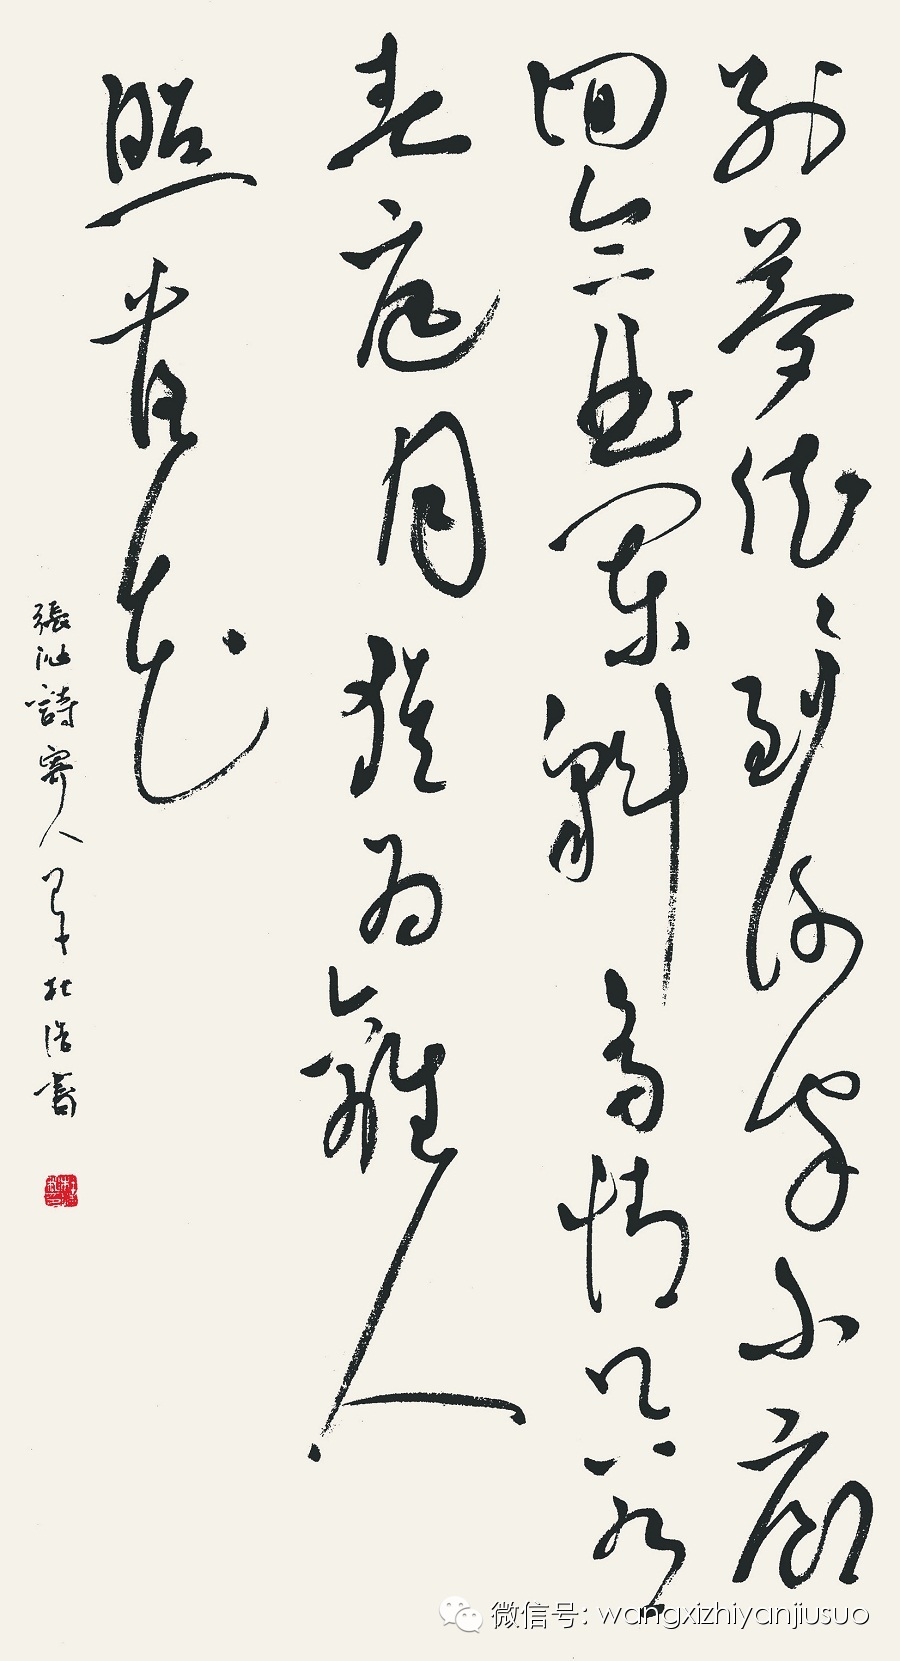 別夢依依到謝家小廊
回合曲闌斜多情只有
春庭月猶為離人
照落花
張泌詩寄人 杜浩書
微信号: wangxizhiyanjiusuo